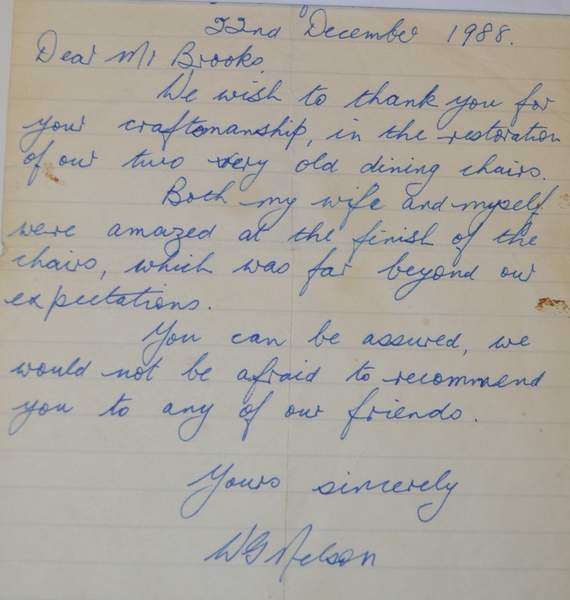 22nd December 1988.
Dear Mr Brooks,
We wish to thank you for
your craftsmanship, in the restoration
of our two very old dining chairs.
Both my wife and myself
were amazed at the finish of the
chairs, which was far beyond our
expectations.
You can be assured, we
would not be afraid to recommend
you to any of our friends.
Yours sincerely
WG Nelson